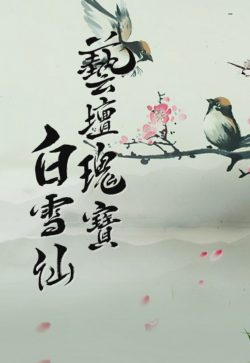 藝壇瑰寶
白雪仙